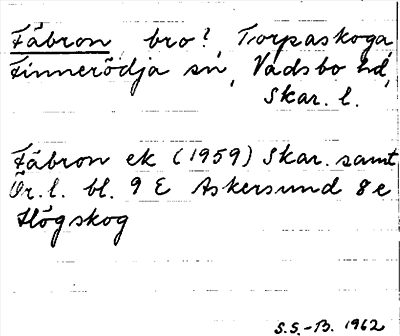 Fäbron, bro?, Torpaskoga,
Finnerödja sn, Vadsbo hd,
Skar. l.
Fäbron ek (1959) Skar. samt
Ör. l. bl. 9 E Askersund 8 e
Högskog
S.S.-B. 1962